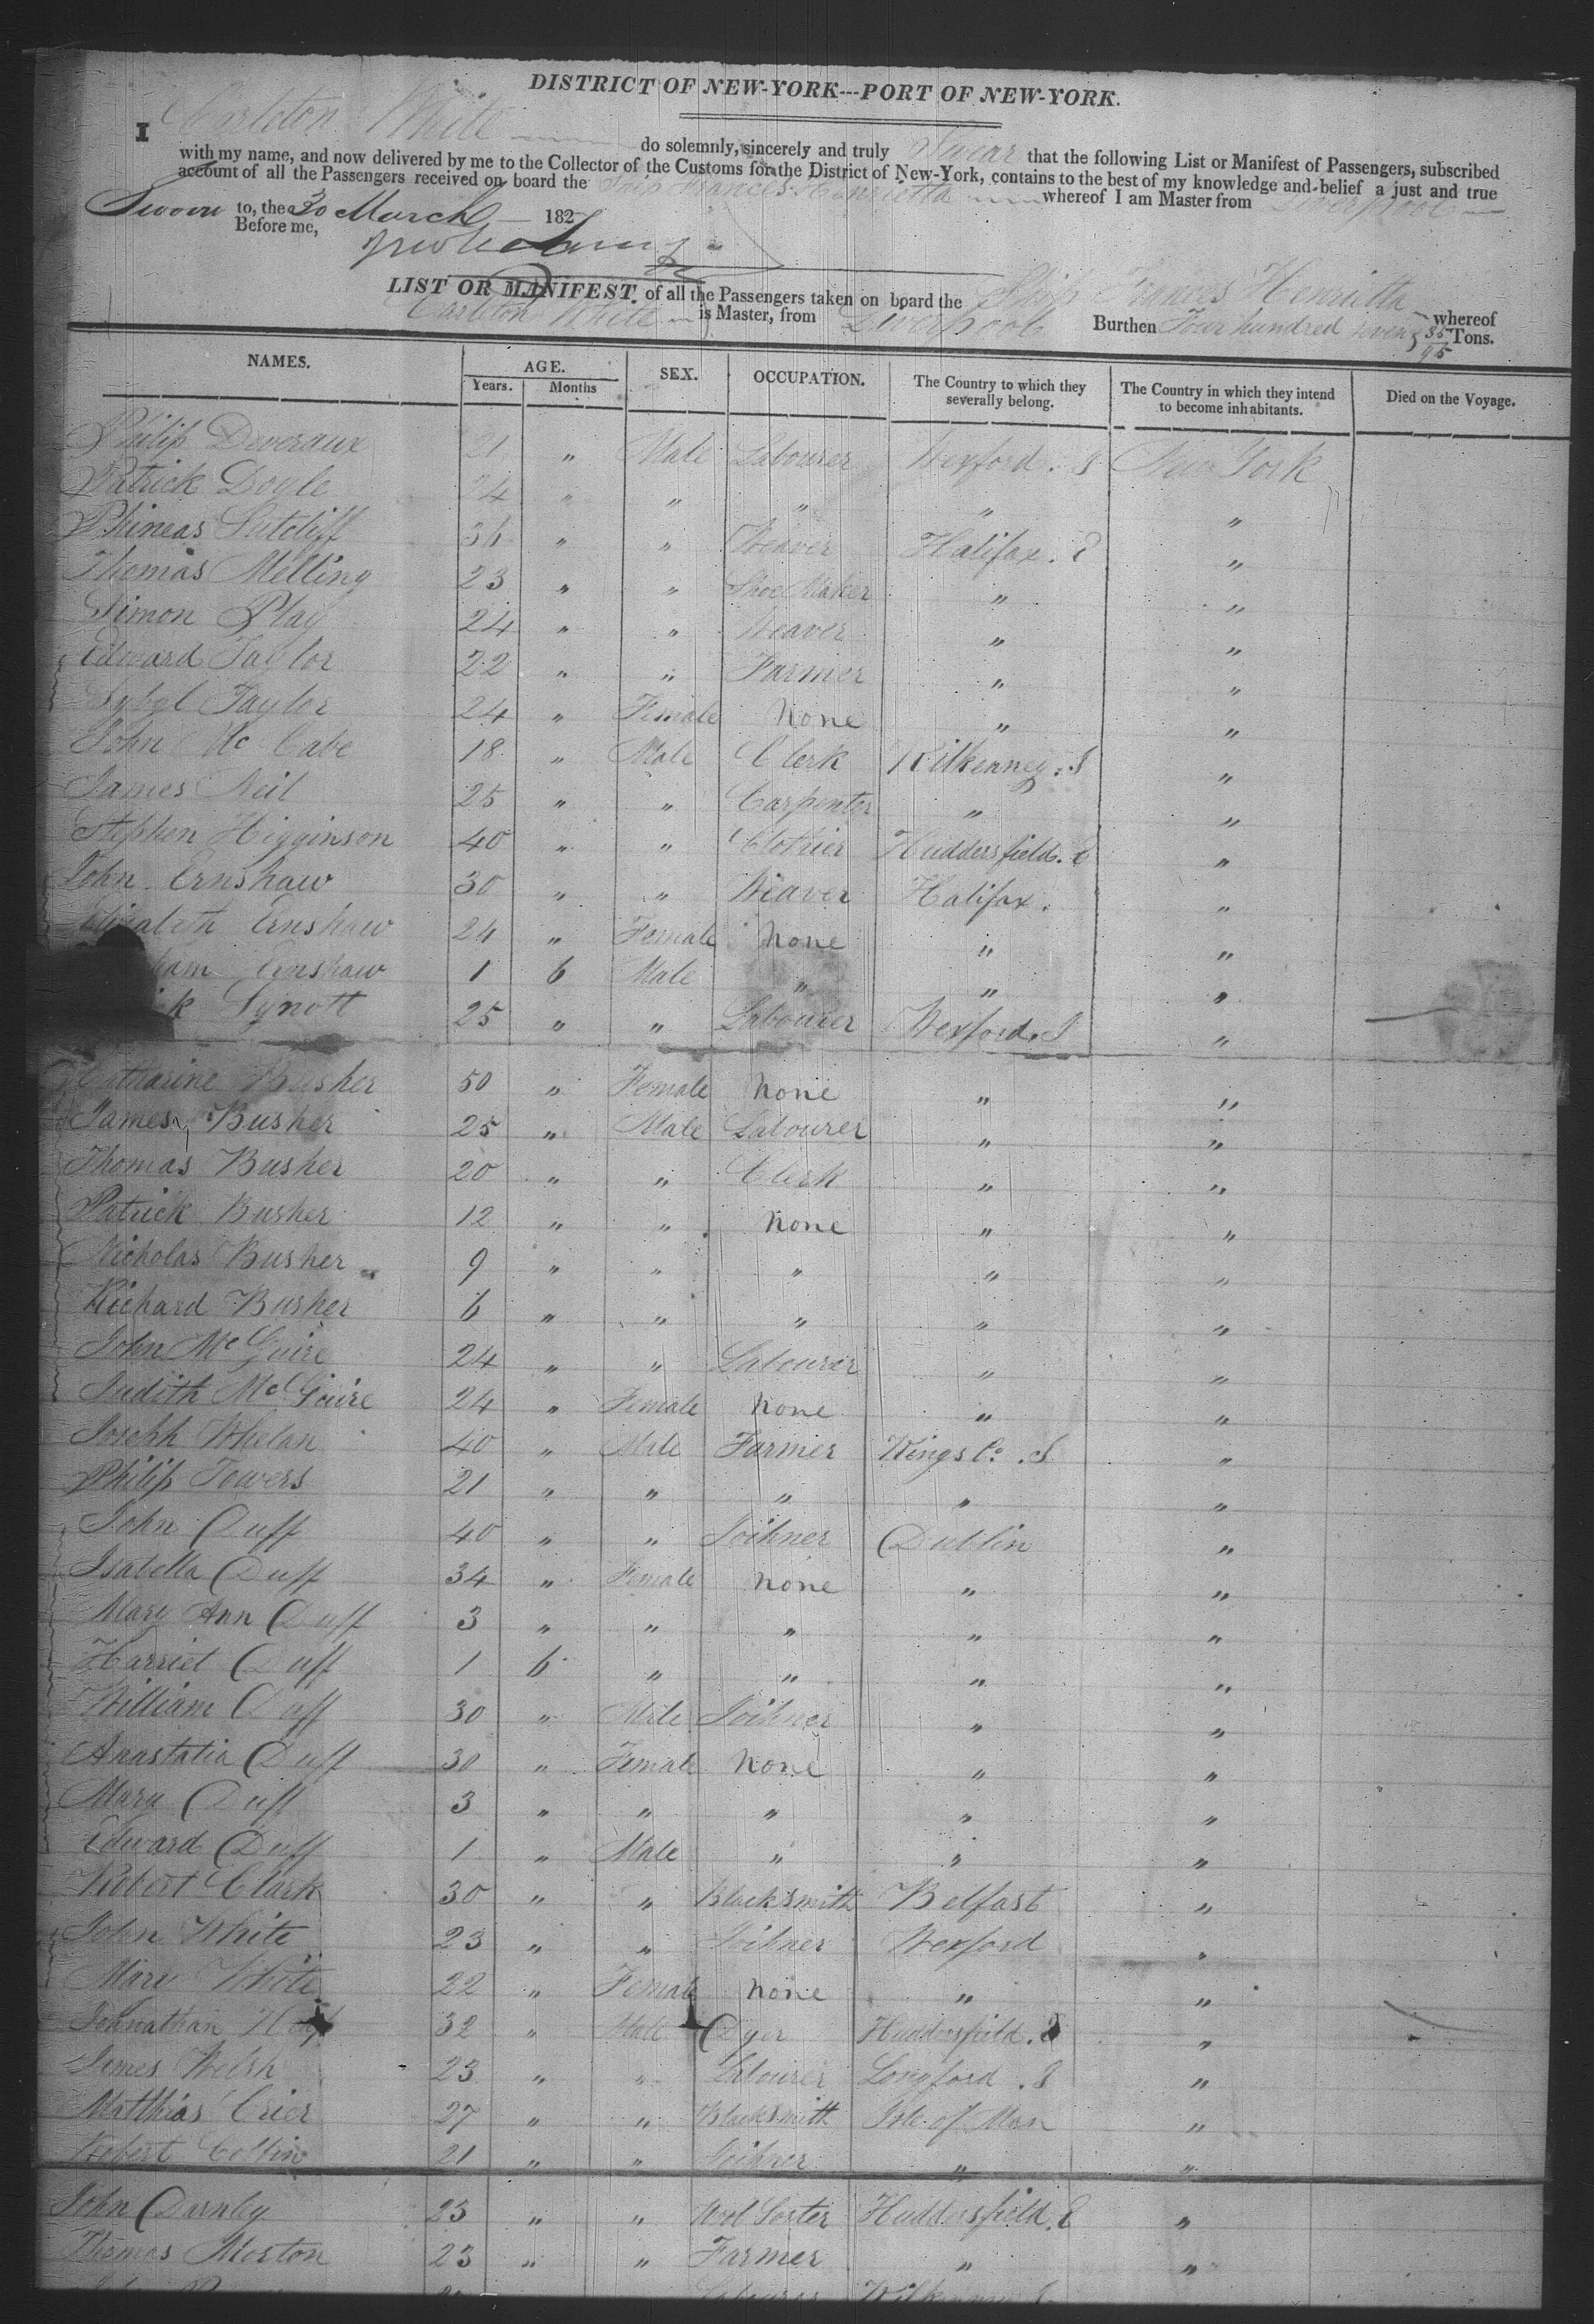 DISTRICT OF NEW-YORK---PORT OF NEW-YORK.
I Carleton White do solemnly, sincerely and truly Swear that the following List or Manifest of Passengers, subscribed
with my name, and now delivered by me to the Collector of the Customs for the District of New-York, contains to the best of my knowledge and belief a just and true
account of all the Passengers received on board the Ship Frances Henrietta whereof I am Master from Liverpool
Sworn to, the 30 March 182
Before me,
LIST OR MANIFEST of all the Passengers taken on board the Ship Frances Henrietta whereof
Carleton White is Master, from Liverpool Burthen Four hundred seven 35/95 Tons.
NAMES. AGE. Years. Months SEX. OCCUPATION. The Country to which they severally belong. The Country in which they intend to become inhabitants. Died on the Voyage.
Philip Deveraux 21 " Male Labourer Wexford. I New York
Patrick Doyle 24 " " " " "
Phineas Sutcliff 36 " " Weaver Halifax. E "
Thomas Melling 23 " " Shoe Maker " "
Simon Play 24 " " Weaver " "
Edward Taylor 22 " " Farmer " "
Sybyl Taylor 24 " Female None " "
John McCabe 18 " Male Clerk Kilkenney. I "
James Neil 25 " " Carpenter " "
Stephen Higginson 40 " " Clothier Huddersfield. E "
John Ernshaw 30 " " Weaver Halifax. "
Elizabeth Ernshaw 24 " Female None " "
ham Ernshaw 1 6 Male " " "
k Synott 25 " " Labourer Wexford. I "
Catharine Busher 50 " Female None " "
James Busher 25 " Male Labourer " "
Thomas Busher 20 " " Clerk " "
Patrick Busher 12 " " None " "
Nicholas Busher 9 " " " " "
Richard Busher 6 " " " " "
John McGuire 24 " " Labourer " "
Judith McGuire 24 " Female None " "
Joseph Whelan 40 " Male Farmer Kings Co. I "
Philip Towers 21 " " " " "
John Duff 40 " " Joihner Dublin "
Isabella Duff 34 " Female None " "
Mary Ann Duff 3 " " " " "
Harriet Duff 1 6 " " " "
William Duff 30 " Male Joihner " "
Anastatia Duff 30 " Female None " "
Mary Duff 3 " " " " "
Edward Duff 1 " Male " " "
Robert Clark 30 " " Blacksmith Belfast "
John White 23 " " Joihner Wexford "
Mary White 22 " Female None " "
Johnathan 32 " Male Dyer Huddersfield. E "
James Welsh 23 " " Labourer Longford. I "
Matthias Crier 27 " " Blacksmith Isle of Man "
Robert Collin 21 " " Joihner " "
John Darnley 23 " " Wool Sorter Huddersfield. E "
Thomas Morton 23 " " Farmer " "